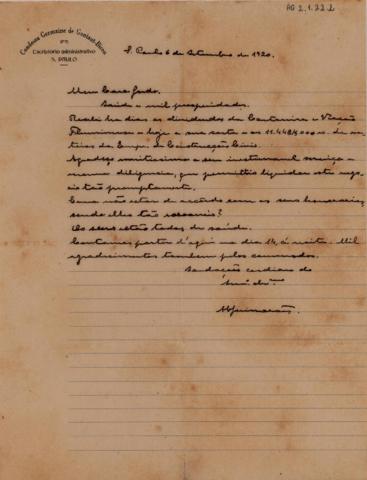 AG 2.1.22.2
Condessa Germaine de Gontaut-Biron
Escriptorio administrativo
S. PAULO
S. Paulo 6 de Setembro de 1920.
Meu Caro
Saude e mil prosperidades.
Recebi ha dias os dividendos da Cantareira e Viação
Fluminense e hoje a sua carta e os 11.448$000
da Emp. de Construcções Civis.
Agradeço muitissimo a seu
diligencia, que permittio liquidar este nego-
cio tão promptamente.
Como não estar de accordo com os seus honorarios,
sendo elles tão
Os seus estão todos de saude.
Contamos partir d'aqui no dia 14, á noite. Mil
agradecimentos tambem pelos
Saudações cordiaes do